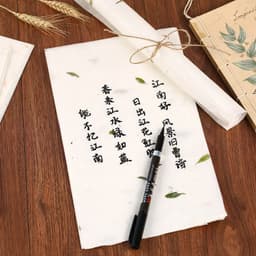 江南好 风景旧曾谙
日出江花红
春来江水绿如蓝
能不忆江南